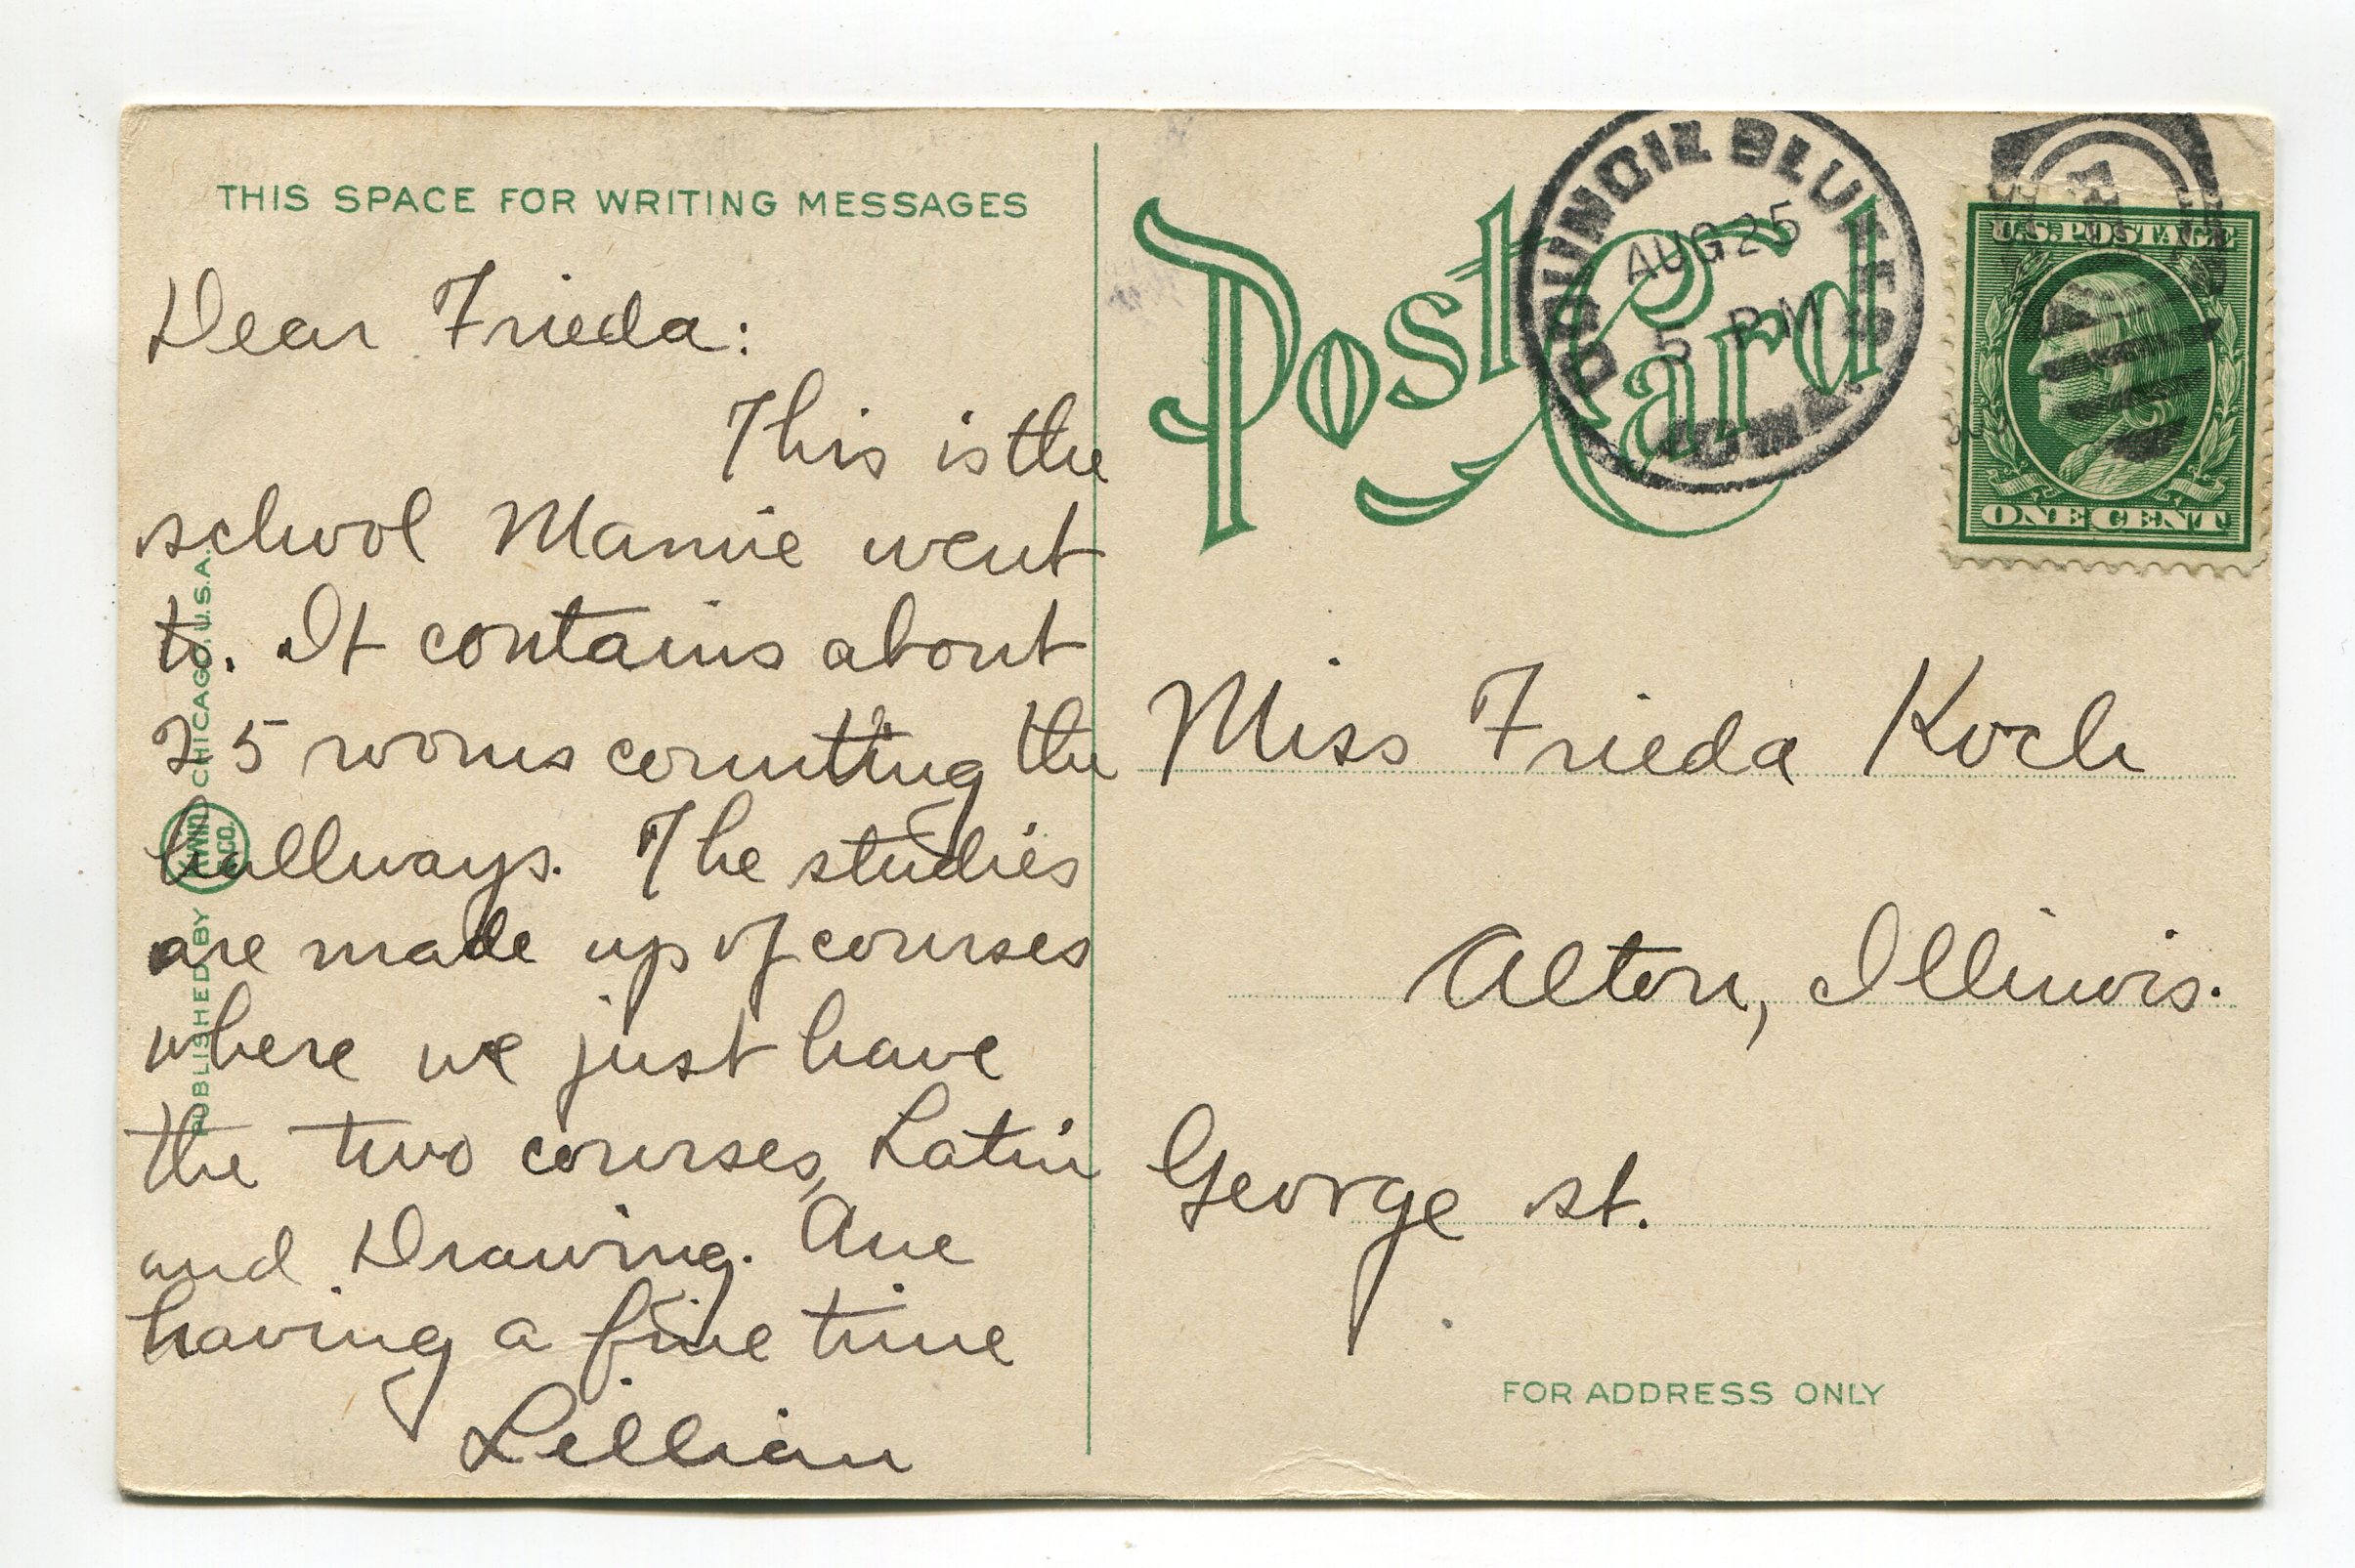 THIS SPACE FOR WRITING MESSAGES
Dear Frieda:
This is the
school Mamie went
to. It contains about
25 rooms counting the
hallways. The studies
are made up of courses
where we just have
the two courses, Latin
and Drawing. Am
having a fine time
Lillian
PUBLISHED BY
CHICAGO. U.S.A.
Post Card
COUNCIL BLUFFS
AUG 25
5 PM
IOWA
U.S. POSTAGE
ONE CENT
Miss Frieda Koch
Alton, Illinois.
George st.
FOR ADDRESS ONLY